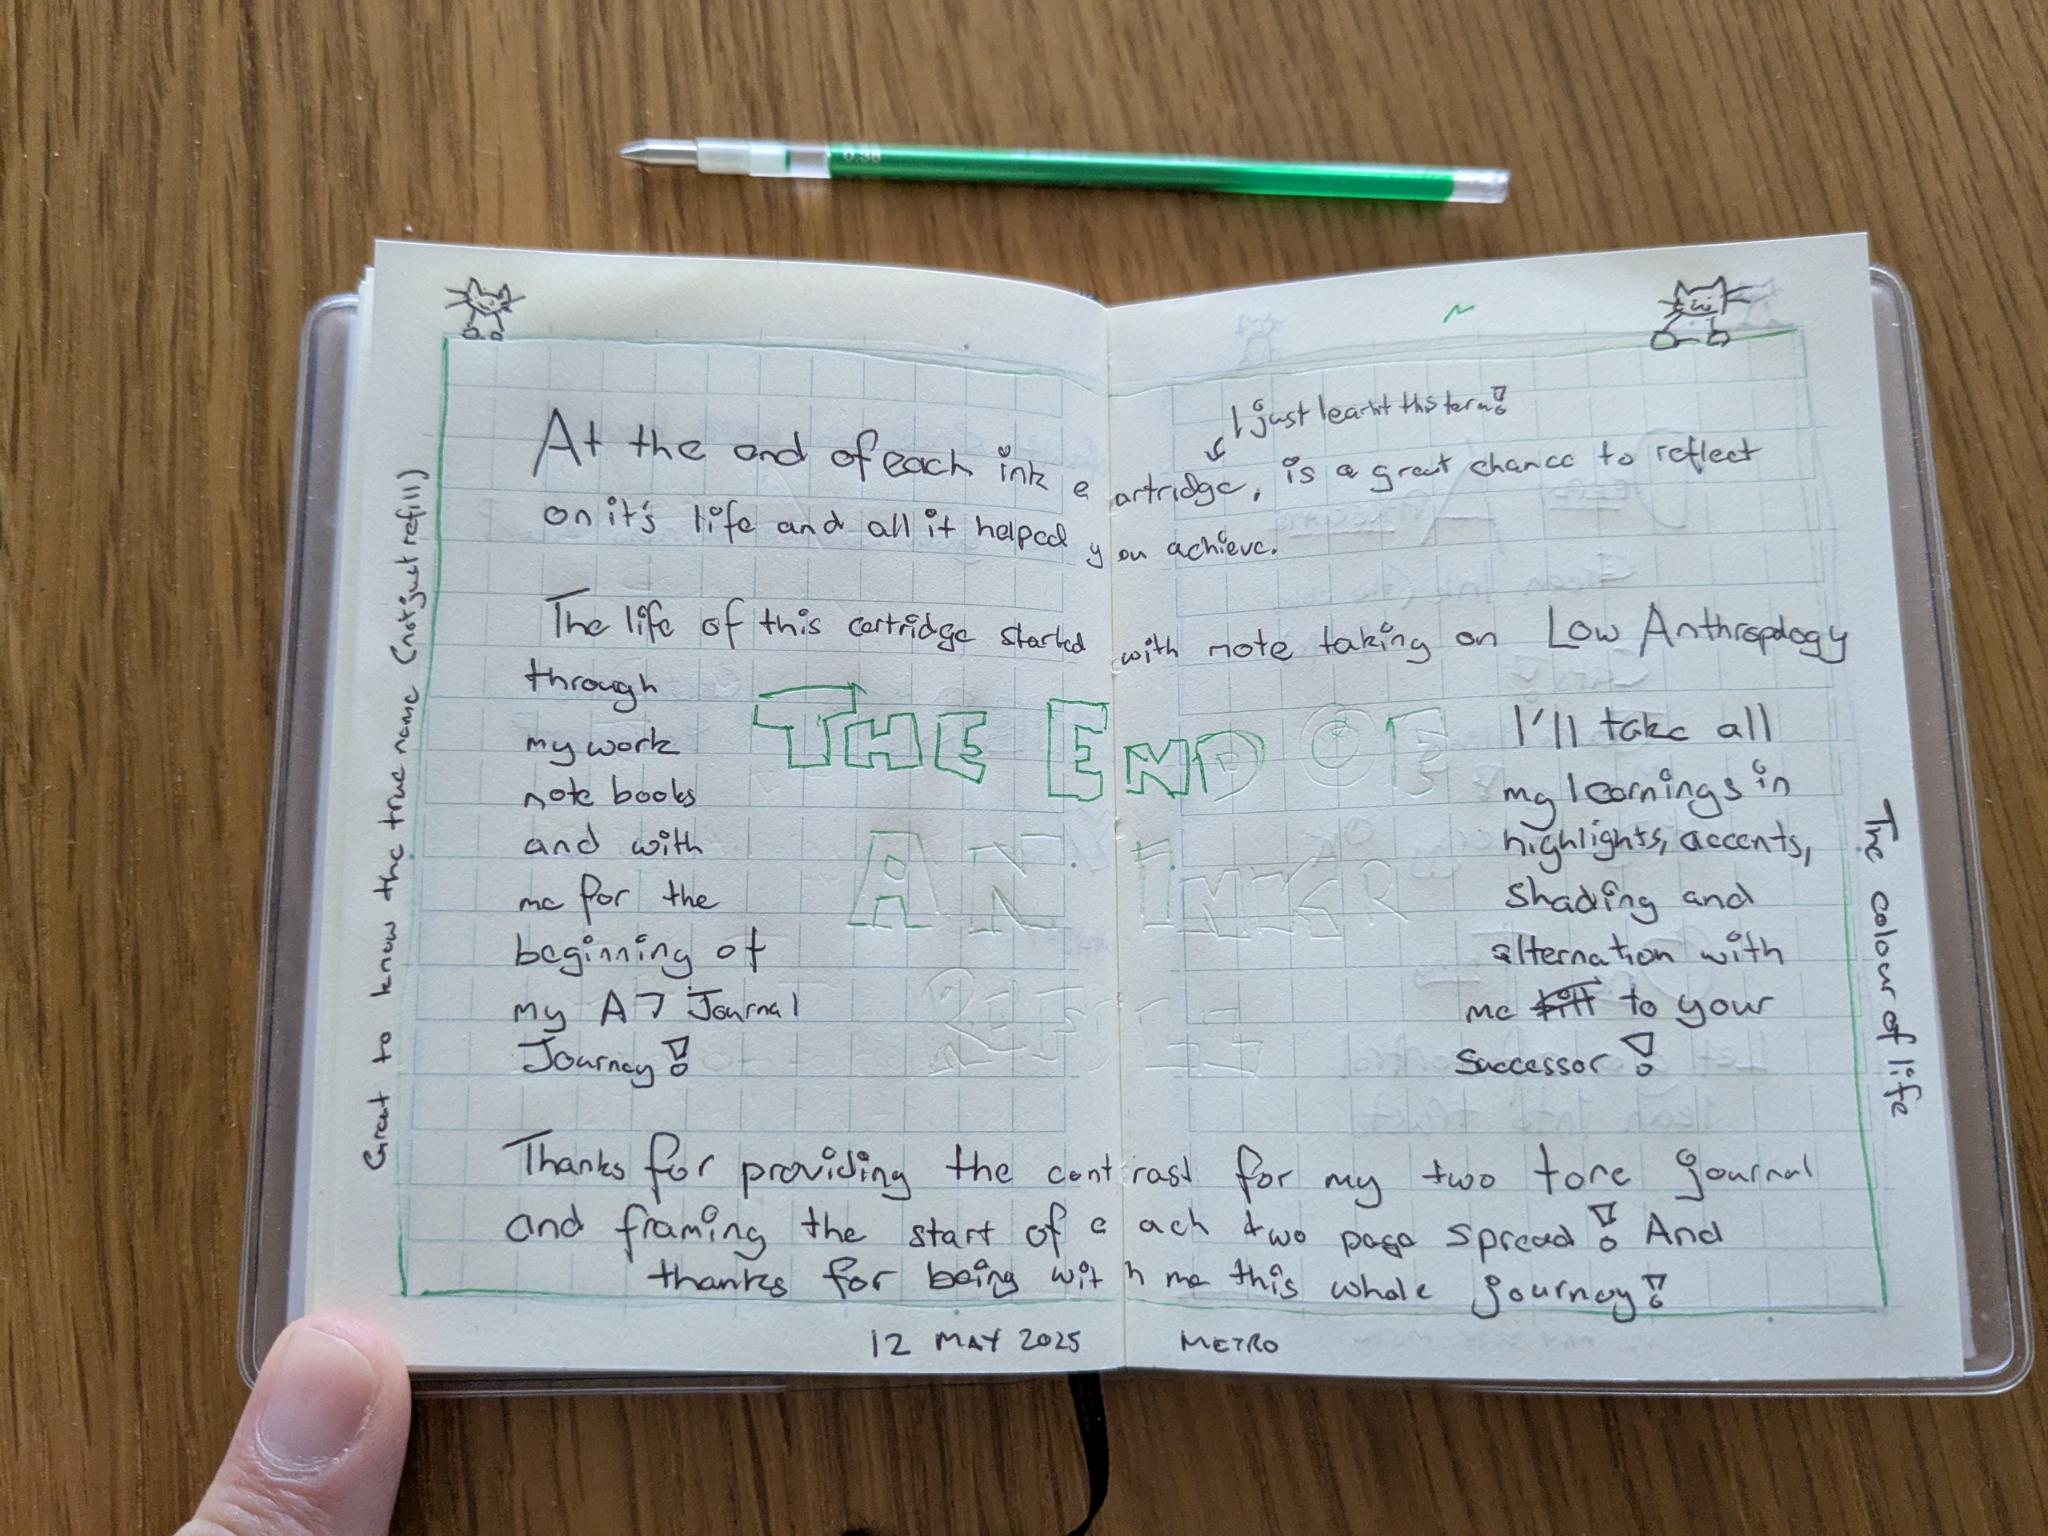 0.38
I just learnt this term!
At the end of each ink cartridge, is a great chance to reflect
on it's life and all it helped you achieve.
The life of this cartridge started with note taking on Low Anthropology
through
my work
note books
and with
me for the
beginning of
my A7 Journal
Journey!
THE END OF
AN INK
I'll take all
my learnings in
highlights, accents,
shading and
alternation with
me to your
successor!
Thanks for providing the contrast for my two tone journal
and framing the start of each two page spread! And
thanks for being with me this whole journey!
12 MAY 2025 METRO
Great to know the true name (not just refill)
The colour of life